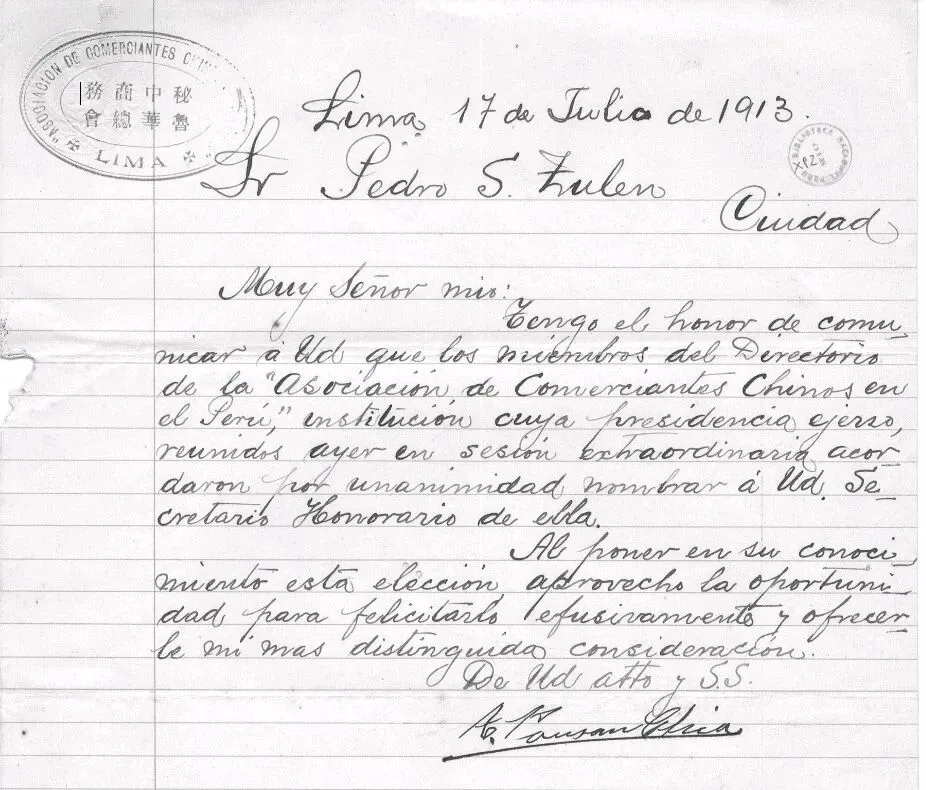 "ASOCIACION DE COMERCIANTES
務商中秘
會總華魯
LIMA
Lima, 17 de Julio de 1913.
Sr Pedro S. Zulen
BIBLIOTECA
XPZ
Ciudad
Muy Señor mio:
Tengo el honor de comu-
nicar á Ud que los miembros del Directorio
de la "Asociación de Comerciantes Chinos en
el Perú," institución cuya presidencia ejerso,
reunidos ayer en sesión extraordinaria acor-
daron por unanimidad nombrar á Ud. Se-
cretario Honorario de ella.
Al poner en su conoci-
miento esta elección, aprovecho la oportuni-
dad para felicitarlo efusivamente y ofrecer-
le mi mas distinguida consideración.
De Ud atto y S.S.